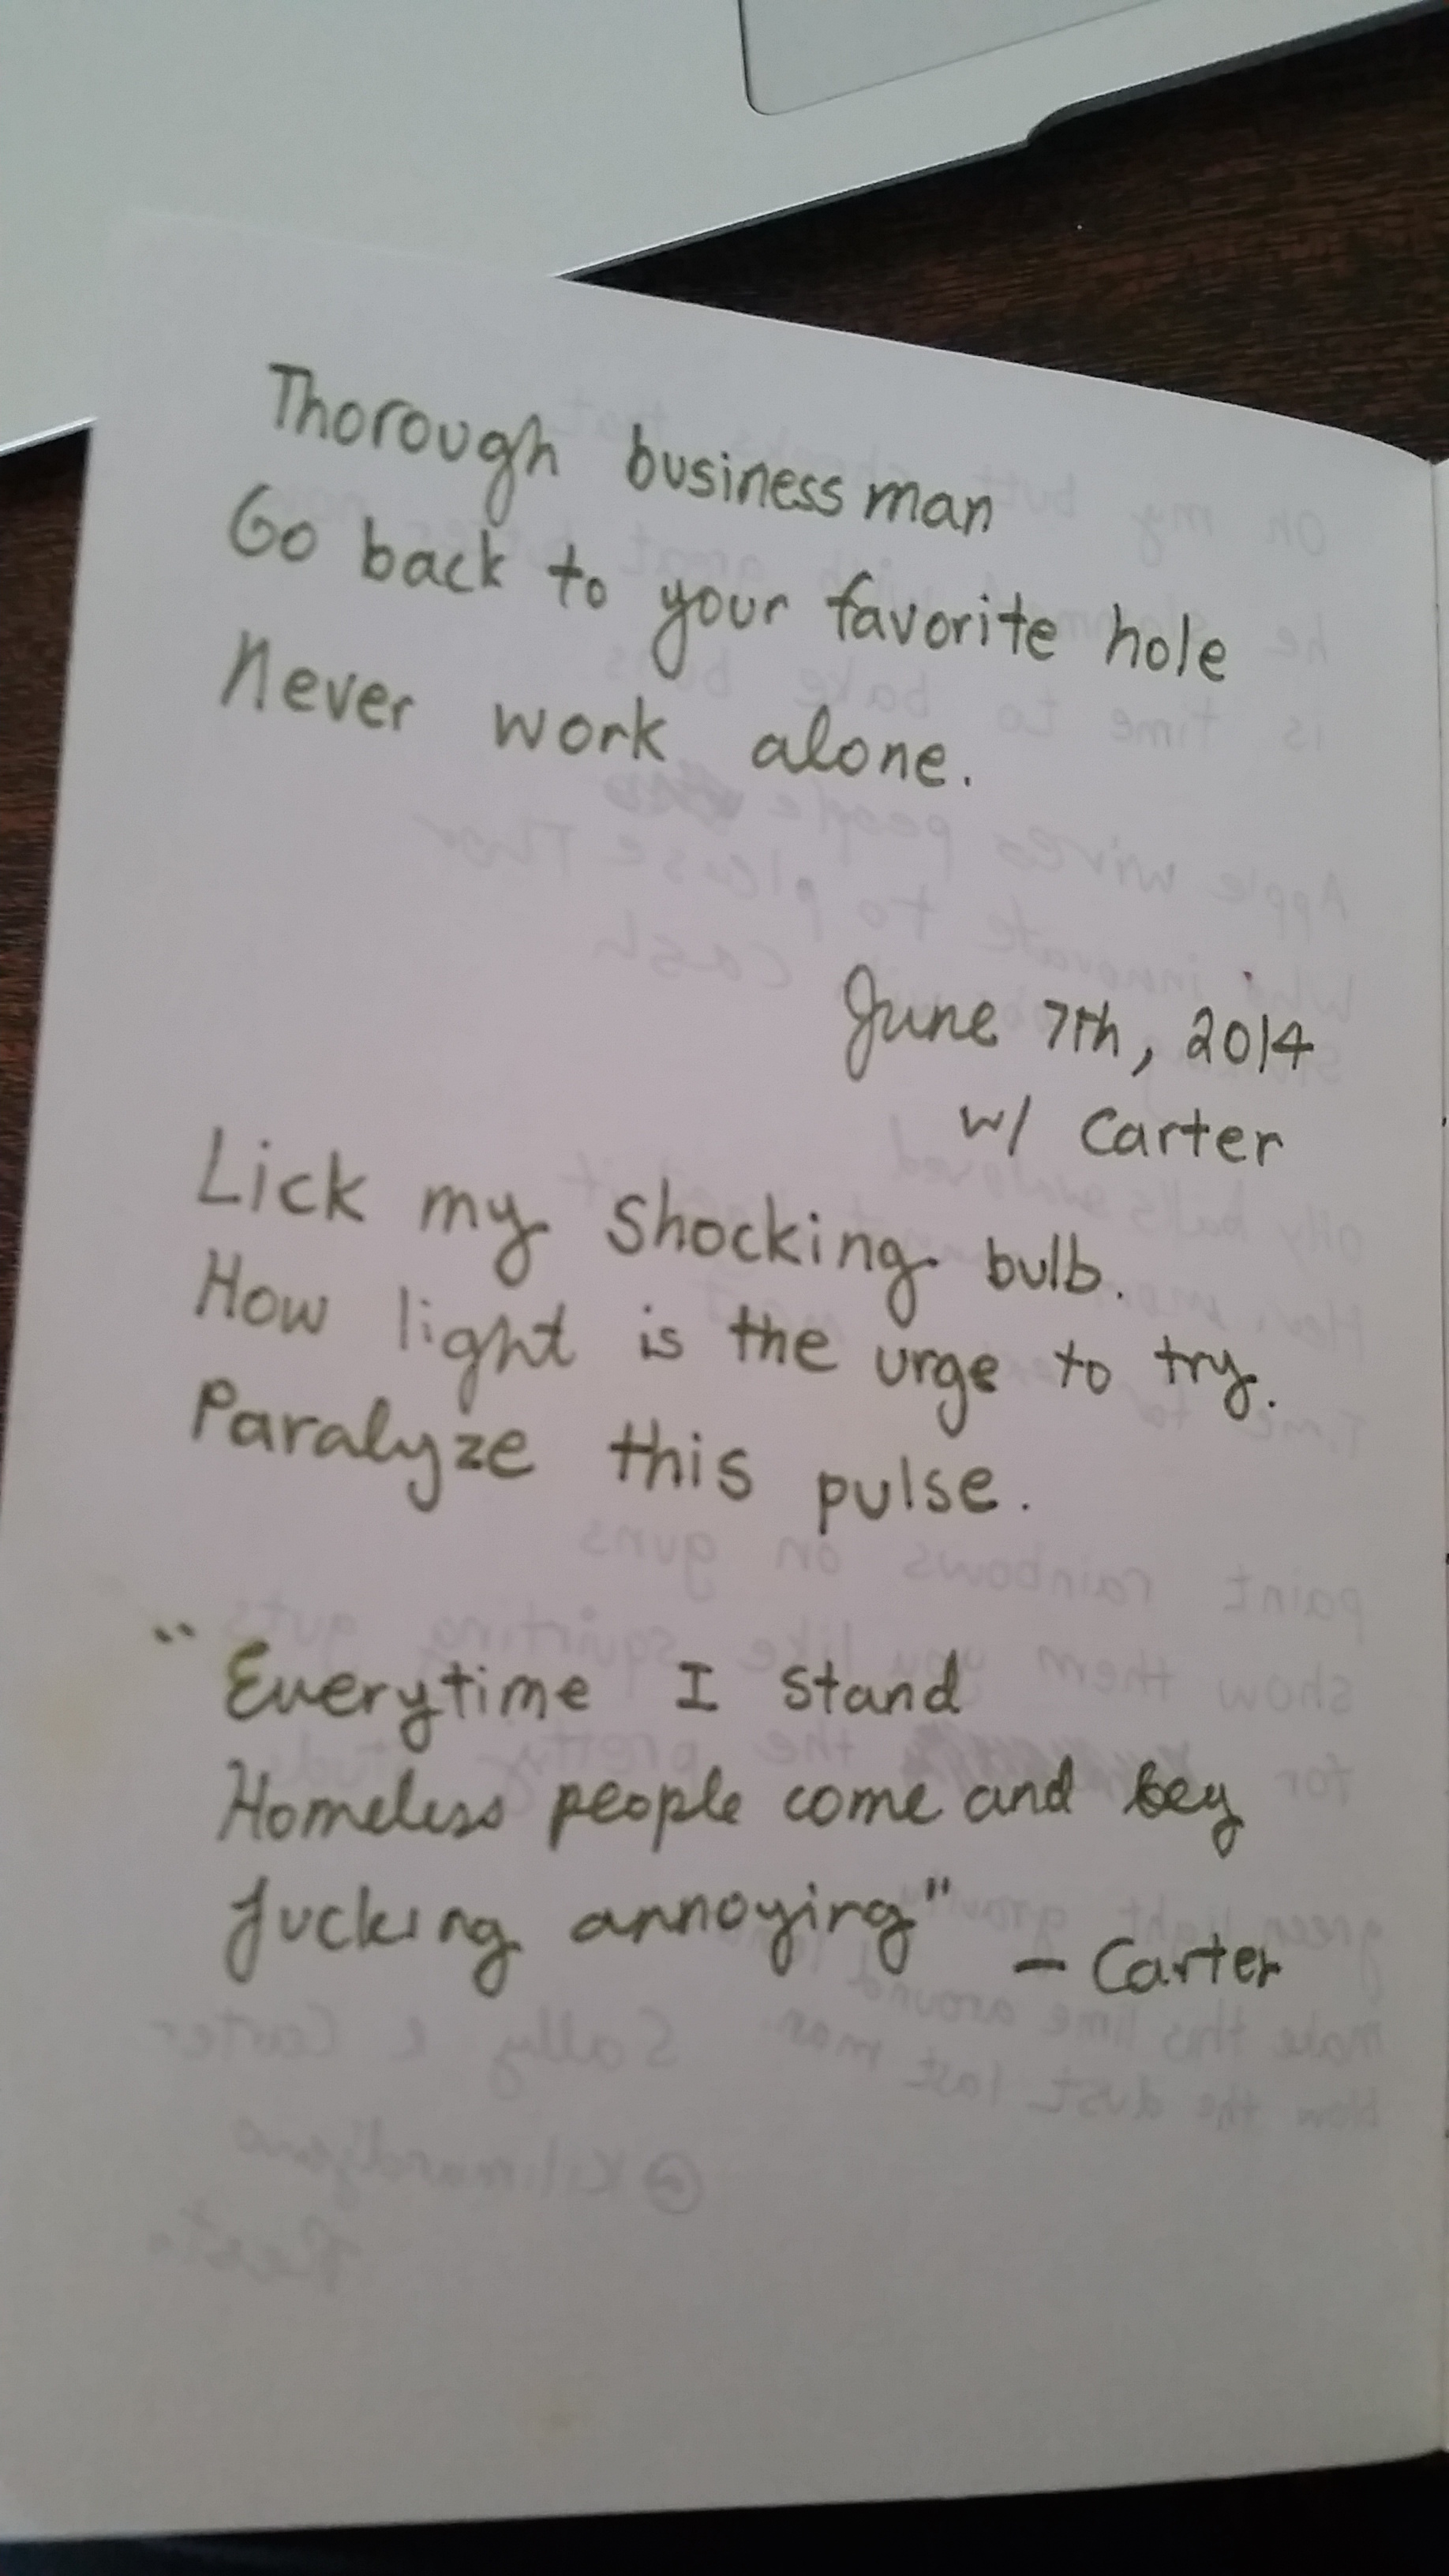 Thorough business man
Go back to your favorite hole
Never work alone.
June 7th, 2014
w/ Carter
Lick my shocking bulb.
How light is the urge to try.
Paralyze this pulse.
"Everytime I stand
Homeless people come and beg
fucking annoying" – Carter